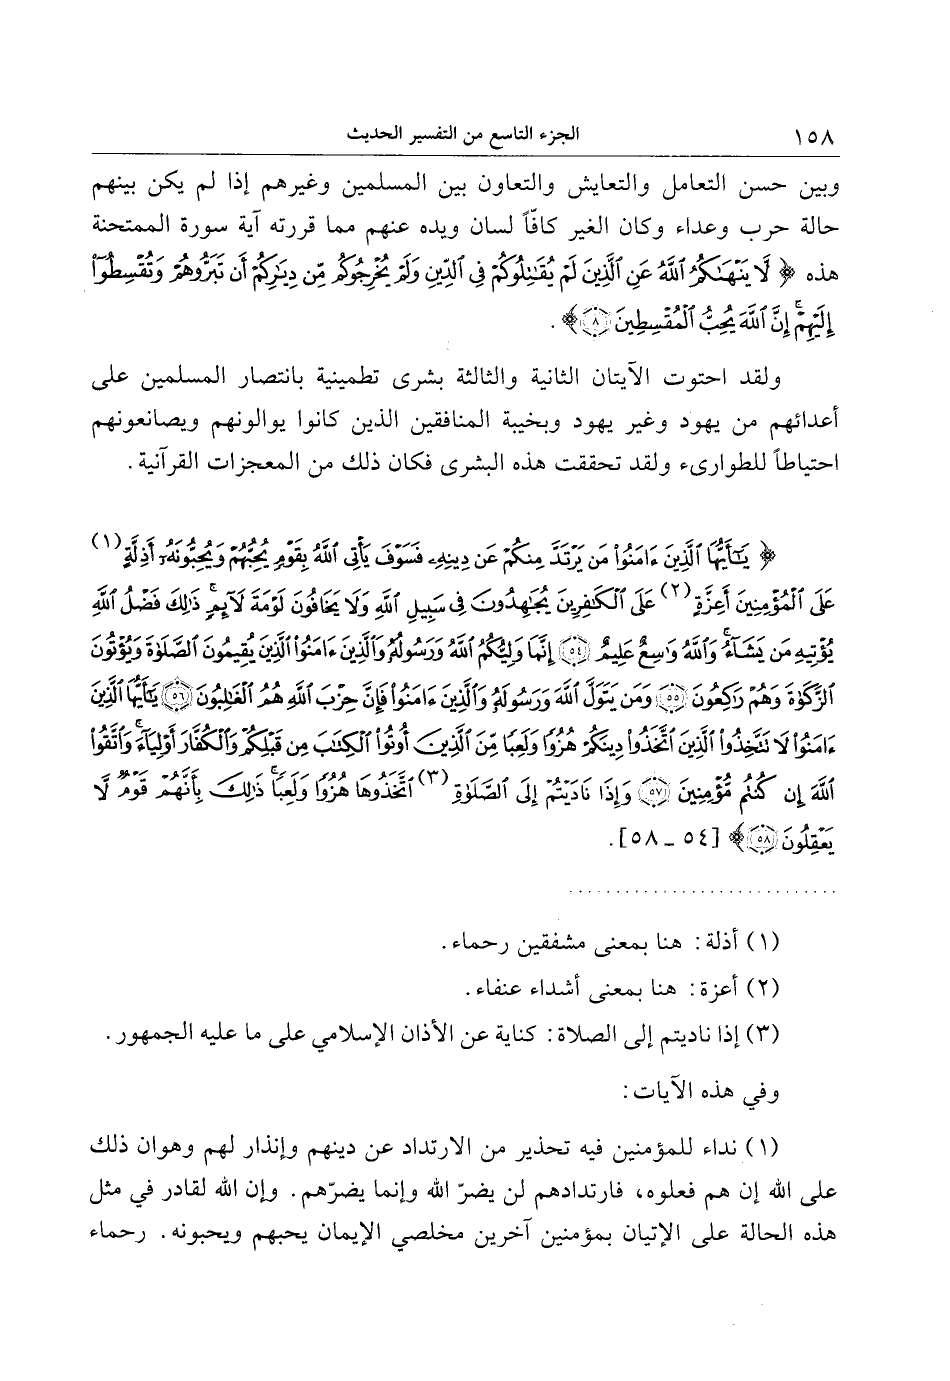 ١٥٨ الجزء التاسع من التفسير الحديث
وبين حسن التعامل والتعايش والتعاون بين المسلمين وغيرهم إذا لم يكن بينهم
حالة حرب وعداء وكان الغير كافّاً لسان ويده عنهم مما قررته آية سورة الممتحنة
هذه ﴿ لَّا يَنْهَىٰكُمُ ٱللَّهُ عَنِ ٱلَّذِينَ لَمْ يُقَـٰتِلُوكُمْ فِي ٱلدِّينِ وَلَمْ يُخْرِجُوكُم مِّن دِيَـٰرِكُمْ أَن تَبَرُّوهُمْ وَتُقْسِطُوٓا۟
إِلَيْهِمْ ۚ إِنَّ ٱللَّهَ يُحِبُّ ٱلْمُقْسِطِينَ ۝٨ ﴾ .
ولقد احتوت الآيتان الثانية والثالثة بشرى تطمينية بانتصار المسلمين على
أعدائهم من يهود وغير يهود وبخيبة المنافقين الذين كانوا يوالونهم ويصانعونهم
احتياطاً للطوارىء ولقد تحققت هذه البشرى فكان ذلك من المعجزات القرآنية.
﴿ يَـٰٓأَيُّهَا ٱلَّذِينَ ءَامَنُوا۟ مَن يَرْتَدَّ مِنكُمْ عَن دِينِهِۦ فَسَوْفَ يَأْتِى ٱللَّهُ بِقَوْمٍ يُحِبُّهُمْ وَيُحِبُّونَهُۥٓ أَذِلَّةٍ (١)
عَلَى ٱلْمُؤْمِنِينَ أَعِزَّةٍ (٢) عَلَى ٱلْكَـٰفِرِينَ يُجَـٰهِدُونَ فِى سَبِيلِ ٱللَّهِ وَلَا يَخَافُونَ لَوْمَةَ لَآئِمٍ ۚ ذَٰلِكَ فَضْلُ ٱللَّهِ
يُؤْتِيهِ مَن يَشَآءُ ۚ وَٱللَّهُ وَٰسِعٌ عَلِيمٌ ۝٥٤ إِنَّمَا وَلِيُّكُمُ ٱللَّهُ وَرَسُولُهُۥ وَٱلَّذِينَ ءَامَنُوا۟ ٱلَّذِينَ يُقِيمُونَ ٱلصَّلَوٰةَ وَيُؤْتُونَ
ٱلزَّكَوٰةَ وَهُمْ رَٰكِعُونَ ۝٥٥ وَمَن يَتَوَلَّ ٱللَّهَ وَرَسُولَهُۥ وَٱلَّذِينَ ءَامَنُوا۟ فَإِنَّ حِزْبَ ٱللَّهِ هُمُ ٱلْغَـٰلِبُونَ ۝٥٦ يَـٰٓأَيُّهَا ٱلَّذِينَ
ءَامَنُوا۟ لَا تَتَّخِذُوا۟ ٱلَّذِينَ ٱتَّخَذُوا۟ دِينَكُمْ هُزُوًا وَلَعِبًا مِّنَ ٱلَّذِينَ أُوتُوا۟ ٱلْكِتَـٰبَ مِن قَبْلِكُمْ وَٱلْكُفَّارَ أَوْلِيَآءَ ۚ وَٱتَّقُوا۟
ٱللَّهَ إِن كُنتُم مُّؤْمِنِينَ ۝٥٧ وَإِذَا نَادَيْتُمْ إِلَى ٱلصَّلَوٰةِ (٣) ٱتَّخَذُوهَا هُزُوًا وَلَعِبًا ۚ ذَٰلِكَ بِأَنَّهُمْ قَوْمٌ لَّا
يَعْقِلُونَ ۝٥٨ ﴾ [٥٤ ـ ٥٨].
(١) أذلة: هنا بمعنى مشفقين رحماء.
(٢) أعزة: هنا بمعنى أشداء عنفاء.
(٣) إذا ناديتم إلى الصلاة: كناية عن الأذان الإسلامي على ما عليه الجمهور.
وفي هذه الآيات:
(١) نداء للمؤمنين فيه تحذير من الارتداد عن دينهم وإنذار لهم وهوان ذلك
على الله إن هم فعلوه، فارتدادهم لن يضرّ الله وإنما يضرّهم. وإن الله لقادر في مثل
هذه الحالة على الإتيان بمؤمنين آخرين مخلصي الإيمان يحبهم ويحبونه. رحماء